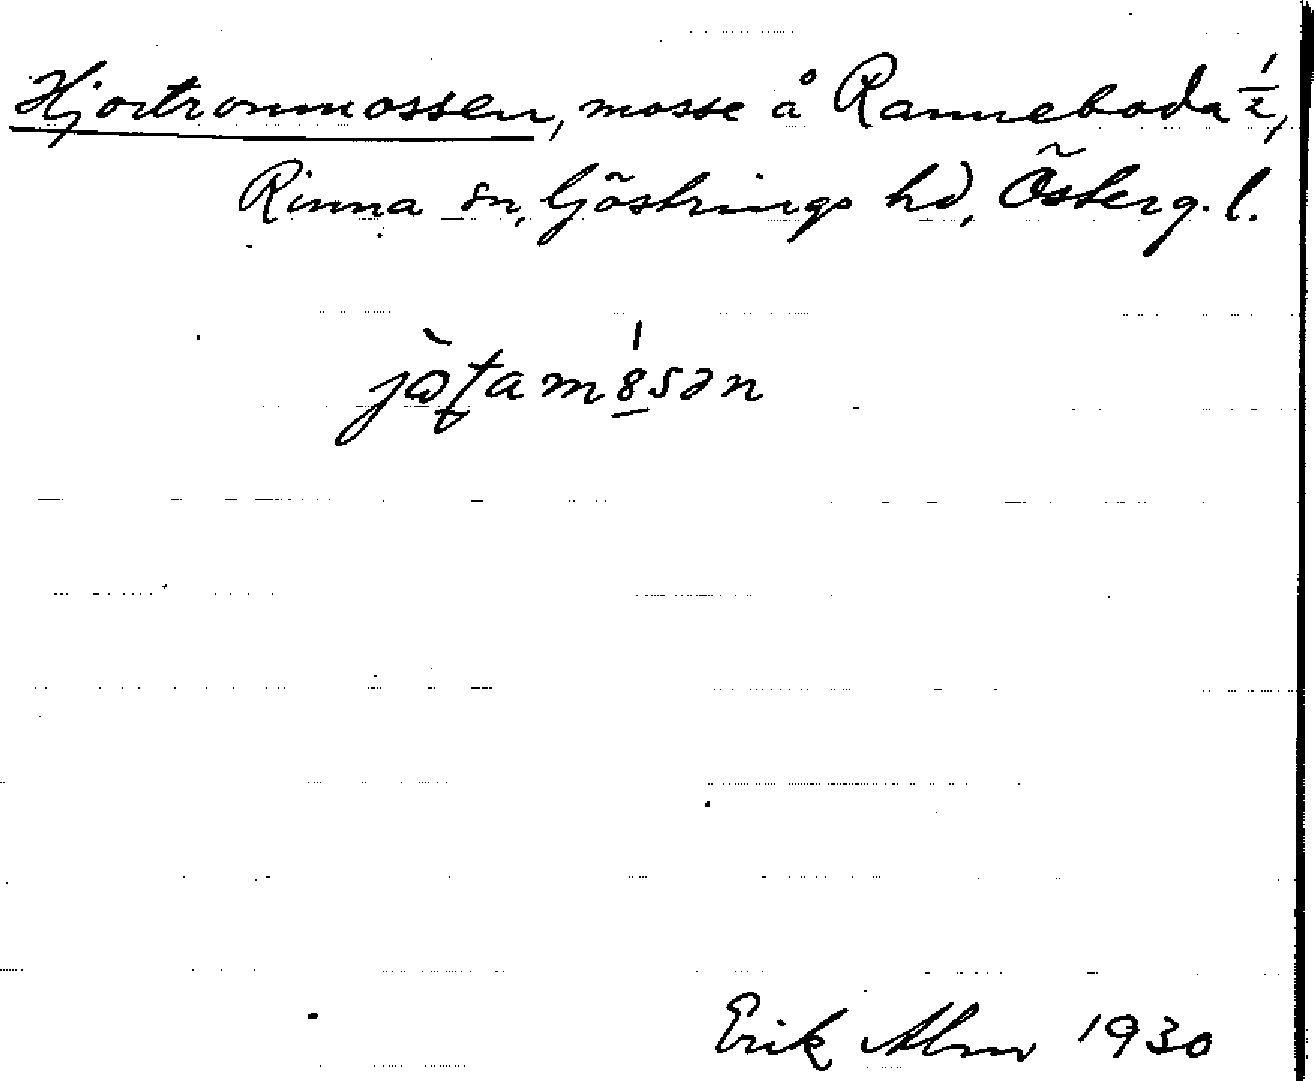 Hjortronmossen, mosse å Ranneboda 1/2,
Rinna sn, Göstrings hd, Österg. l.
jàƭam8́sən
Erik Alm 1930